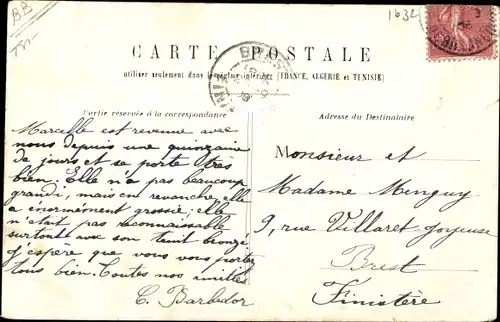 BB
1632
CARTE POSTALE
utiliser seulement dans le régime intérieur (FRANCE, ALGERIE et TUNISIE)
Partie réservée à la correspondance
Adresse du Destinataire
Marcelle est revenue avec
nous depuis une quinzaine
de jours et se porte très
bien. Elle n'a pas beaucoup
grandi, mais en revanche, elle
a énormément grossi; elle
n'était pas reconnaissable
surtout avec son teint bronzé
J'espère que vous vous portez
tous bien. Toutes nos amitiés
C. Barbedor
Monsieur et
Madame Menguy
9, rue Villaret Joyeuse
Brest
Finistère